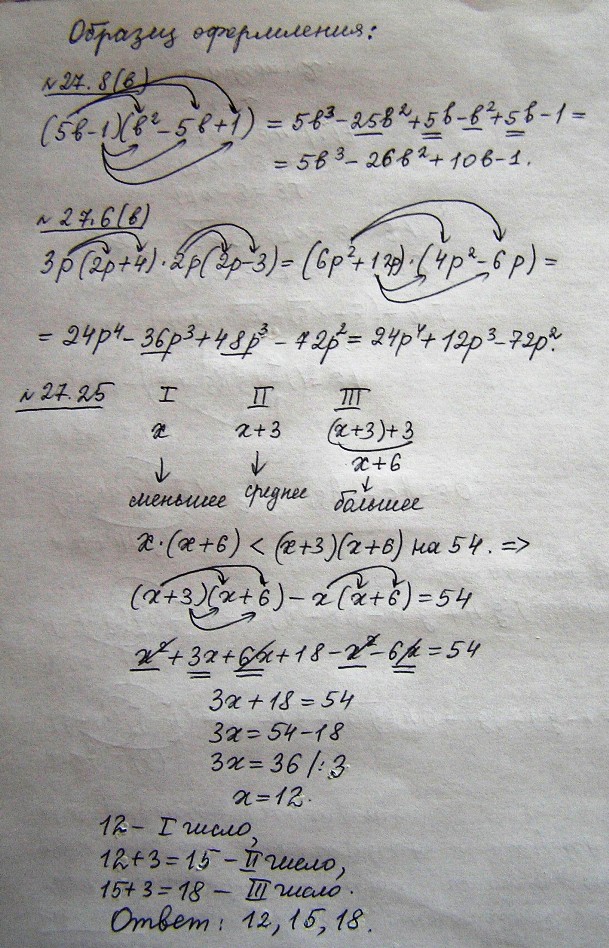 Образец оформления:
№27.8(в)
(5в-1)(в²-5в+1) = 5в³-25в²+5в-в²+5в-1 =
= 5в³-26в²+10в-1.
№27.6(в)
3p(2p+4)·2p(2p-3)=(6p²+12p)·(4p²-6p)=
= 24p⁴-36p³+48p³-72p²=24p⁴+12p³-72p².
№27.25 I II III
x x+3 (x+3)+3
x+6
меньшее среднее большее
x·(x+6) < (x+3)(x+6) на 54. =>
(x+3)(x+6)-x(x+6)=54
x²+3x+6x+18-x²-6x=54
3x+18=54
3x=54-18
3x=36 /:3
x=12.
12- I число,
12+3=15-II число,
15+3=18- III число.
Ответ: 12, 15, 18.